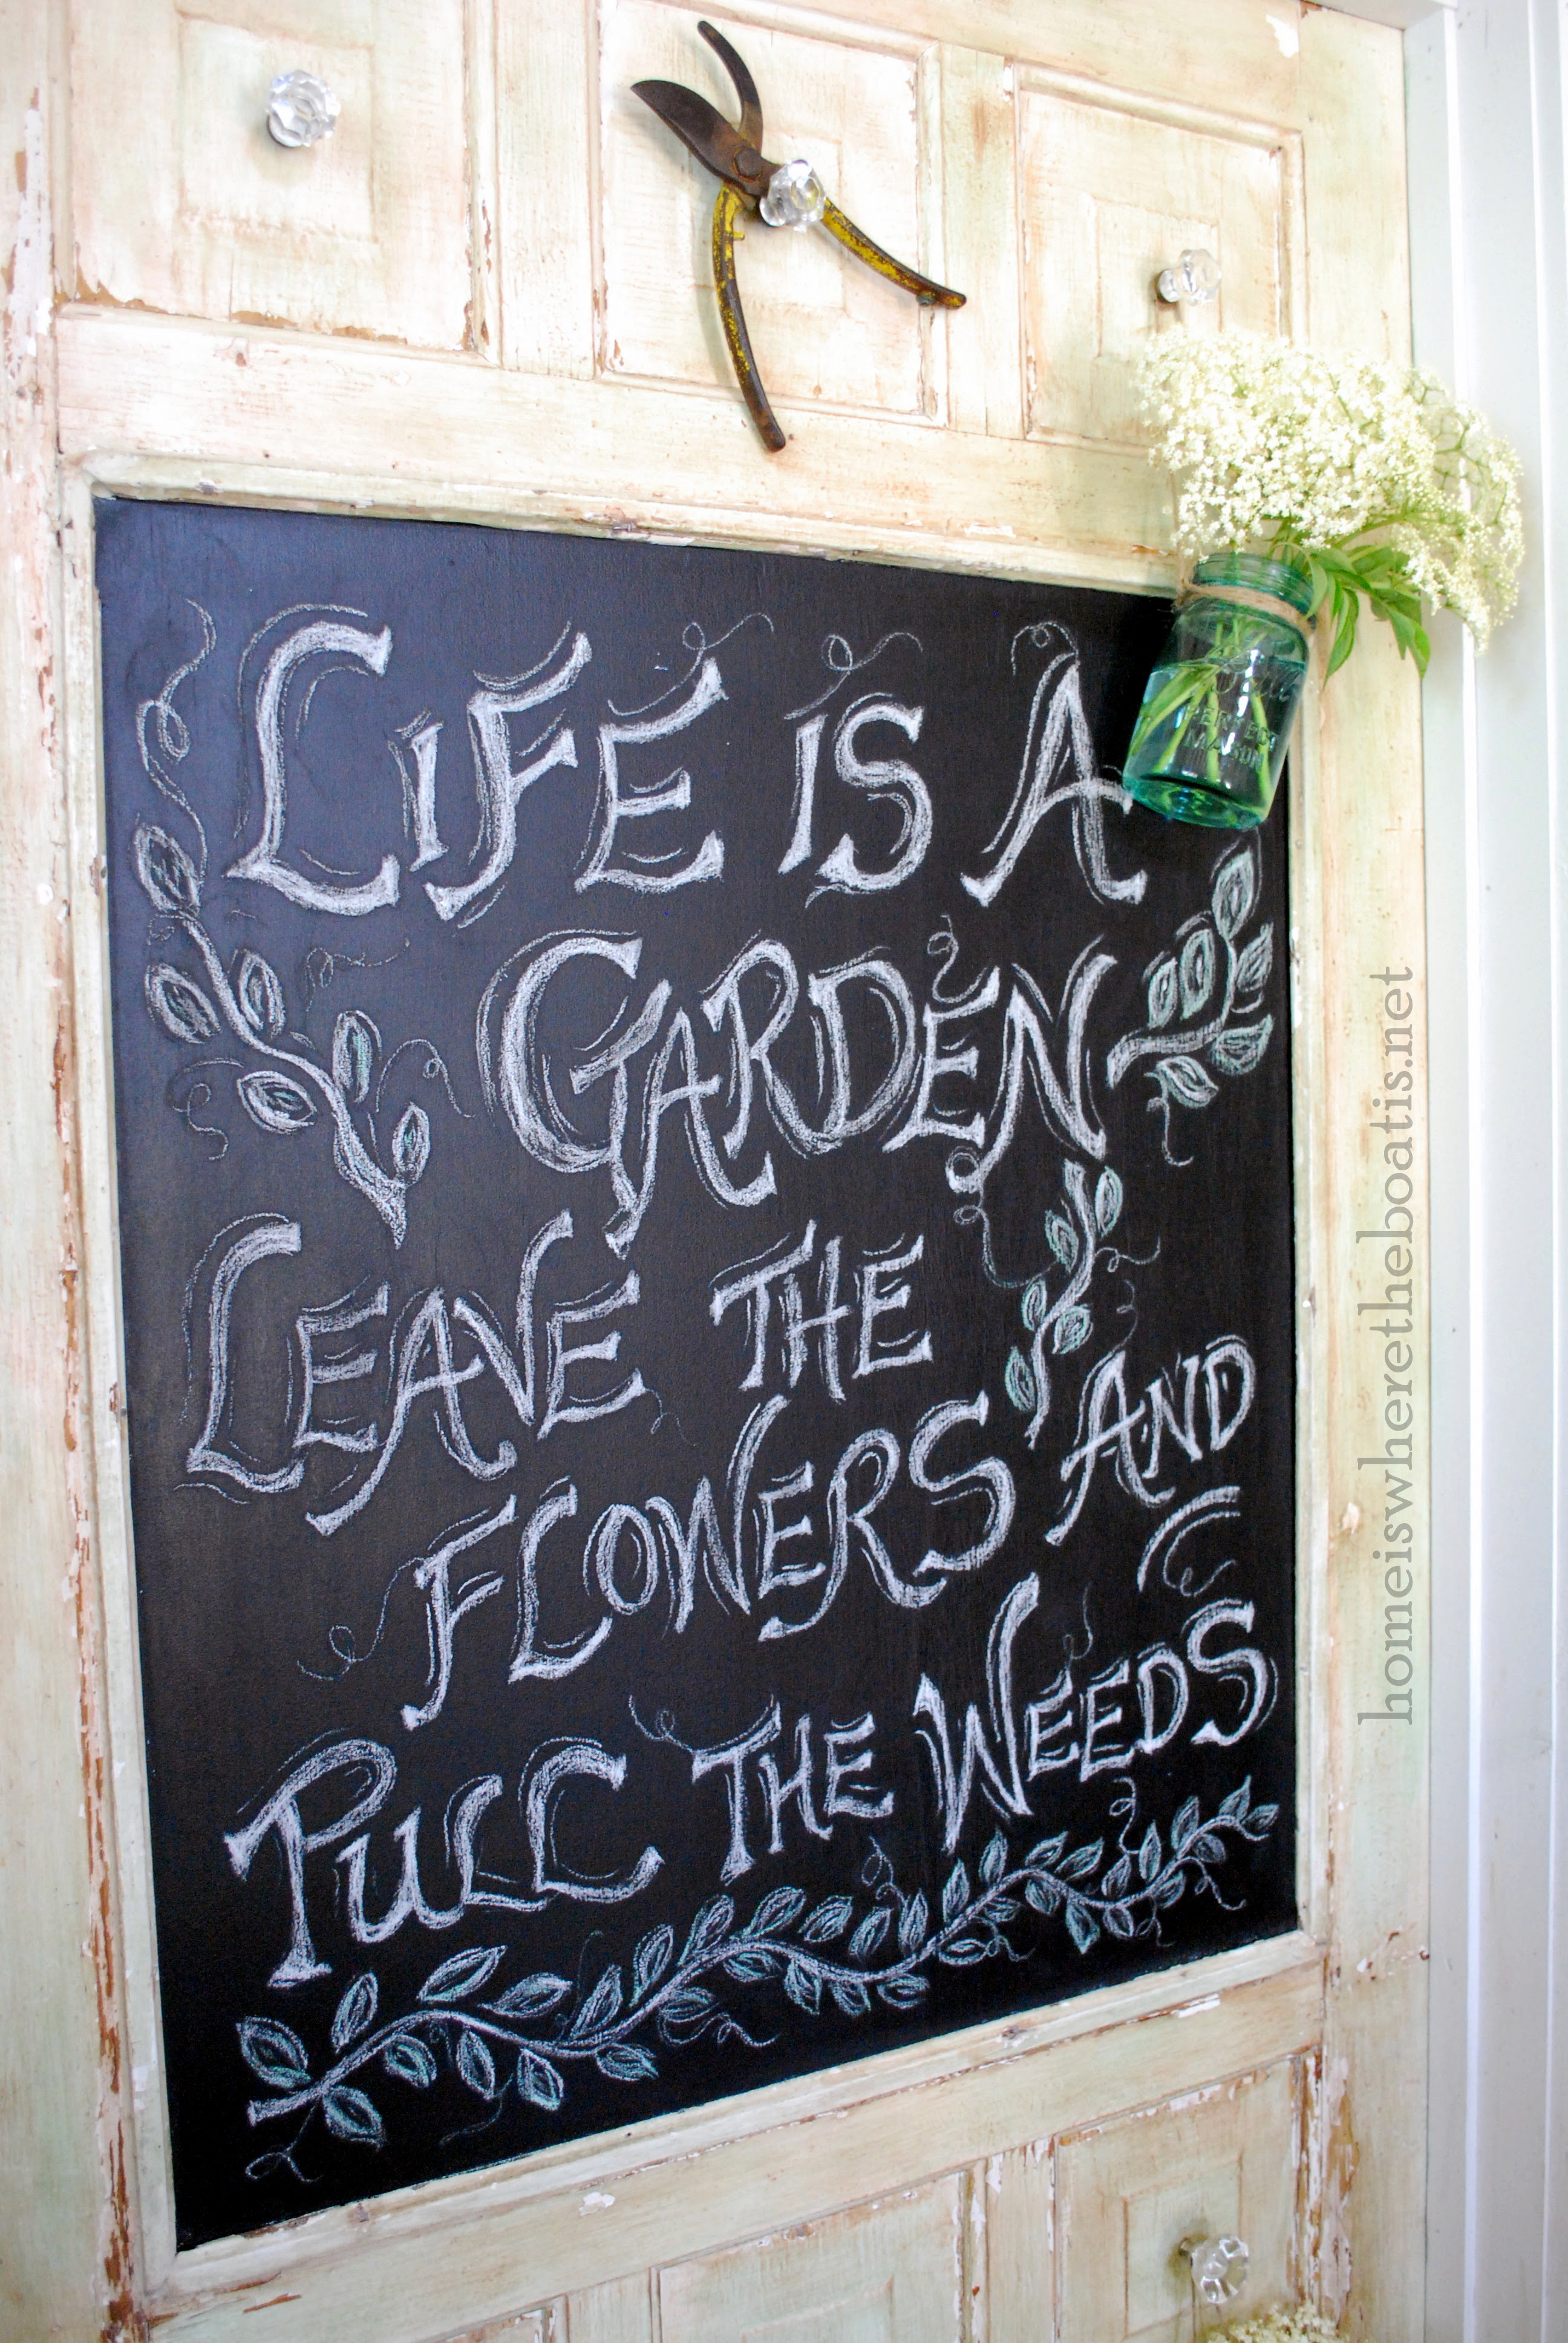 LiFE iS A
GARDEN
LEAVE THE
FLOWERS AND
PuLL THE WEEDS
PERFECT
MASON
homeiswheretheboatis.net